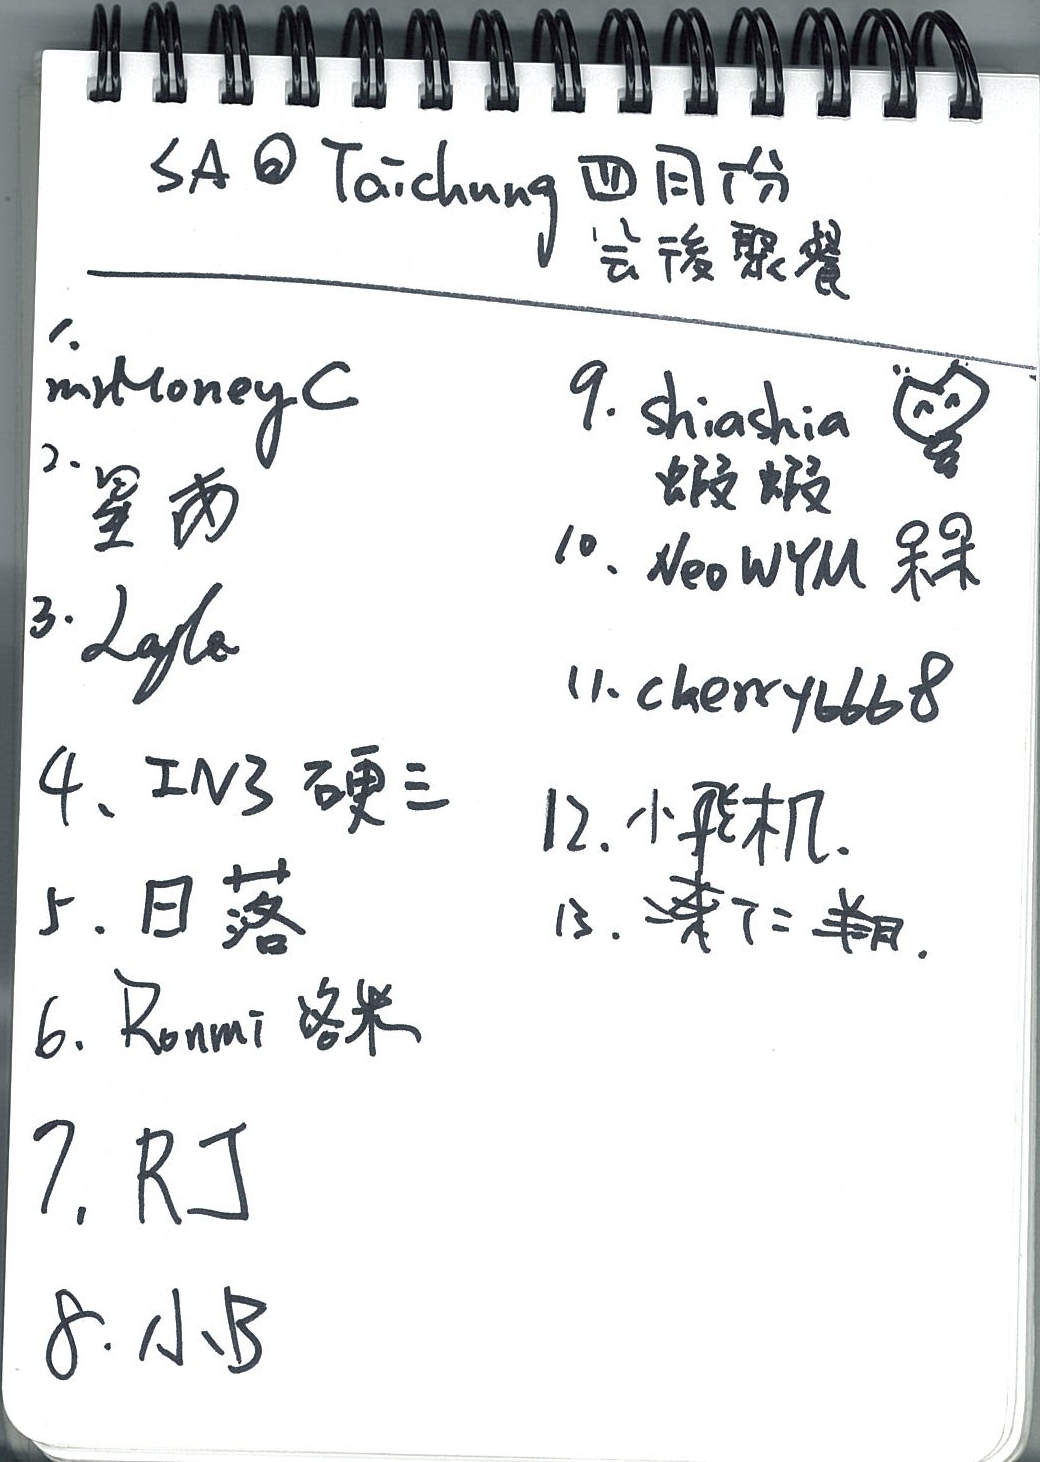 SA@Taichung 四月份
会後聚餐
1.
mrMoneyC
2. 星雨
3. Layla
4、IN3 硬三
5. 日落
6. Ronmi 洛米
7. RJ
8. 小B
9. shiashia
蝦蝦
10. NeoWYM 槑
11. cherry6668
12. 小飛机.
13.